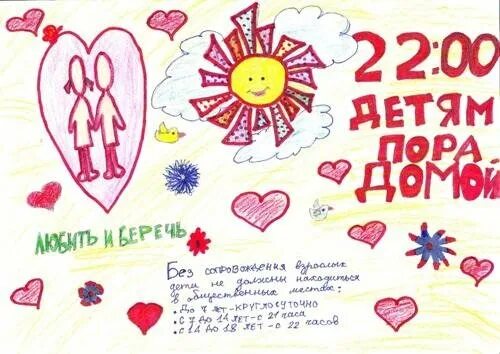 22:00
ДЕТЯМ
ПОРА
ДОМОЙ
ЛЮБИТЬ И БЕРЕЧЬ
Без сопровождения взрослых
дети не должны находиться
в общественных местах:
• До 7 ЛЕТ-КРУГЛОСУТОЧНО
• С 7 ДО 14 ЛЕТ-С 21 часа
• С 14 ДО 18 ЛЕТ-С 22 часов